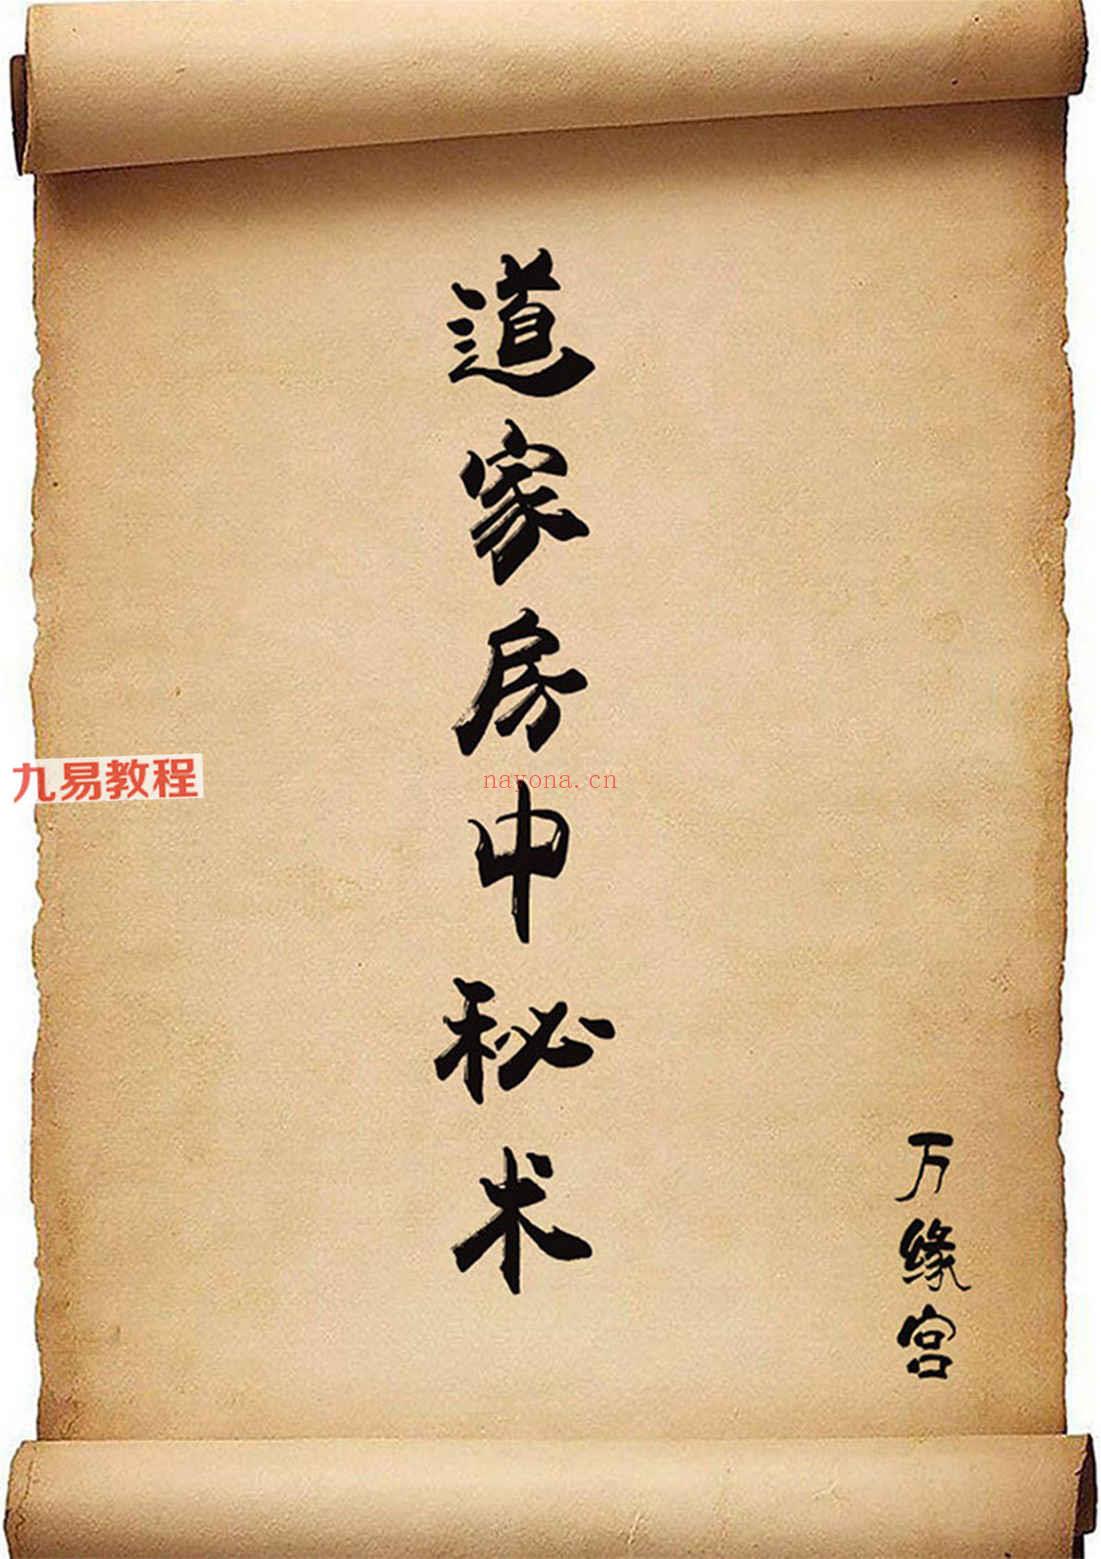 道家房中秘术
九易教程
nayona.cn
万缘宫